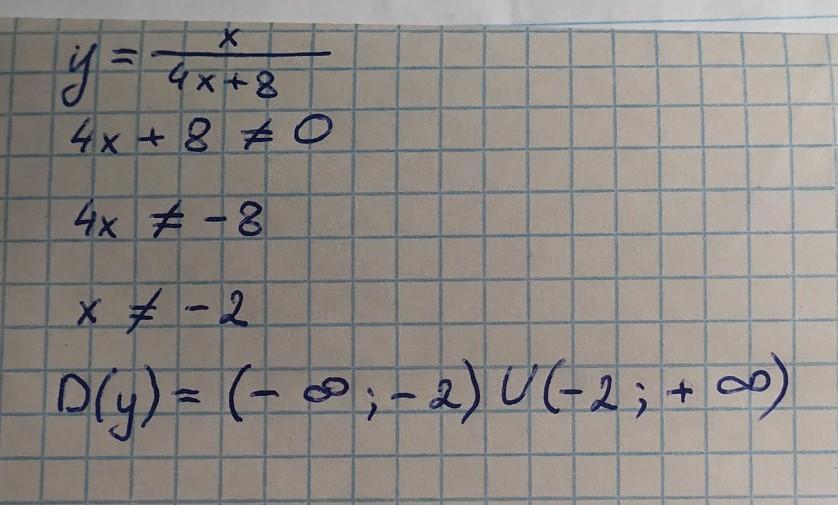 y = x/(4x+8)
4x + 8 ≠ 0
4x ≠ -8
x ≠ -2
D(y) = (- ∞ ; - 2) ∪ (-2 ; + ∞)